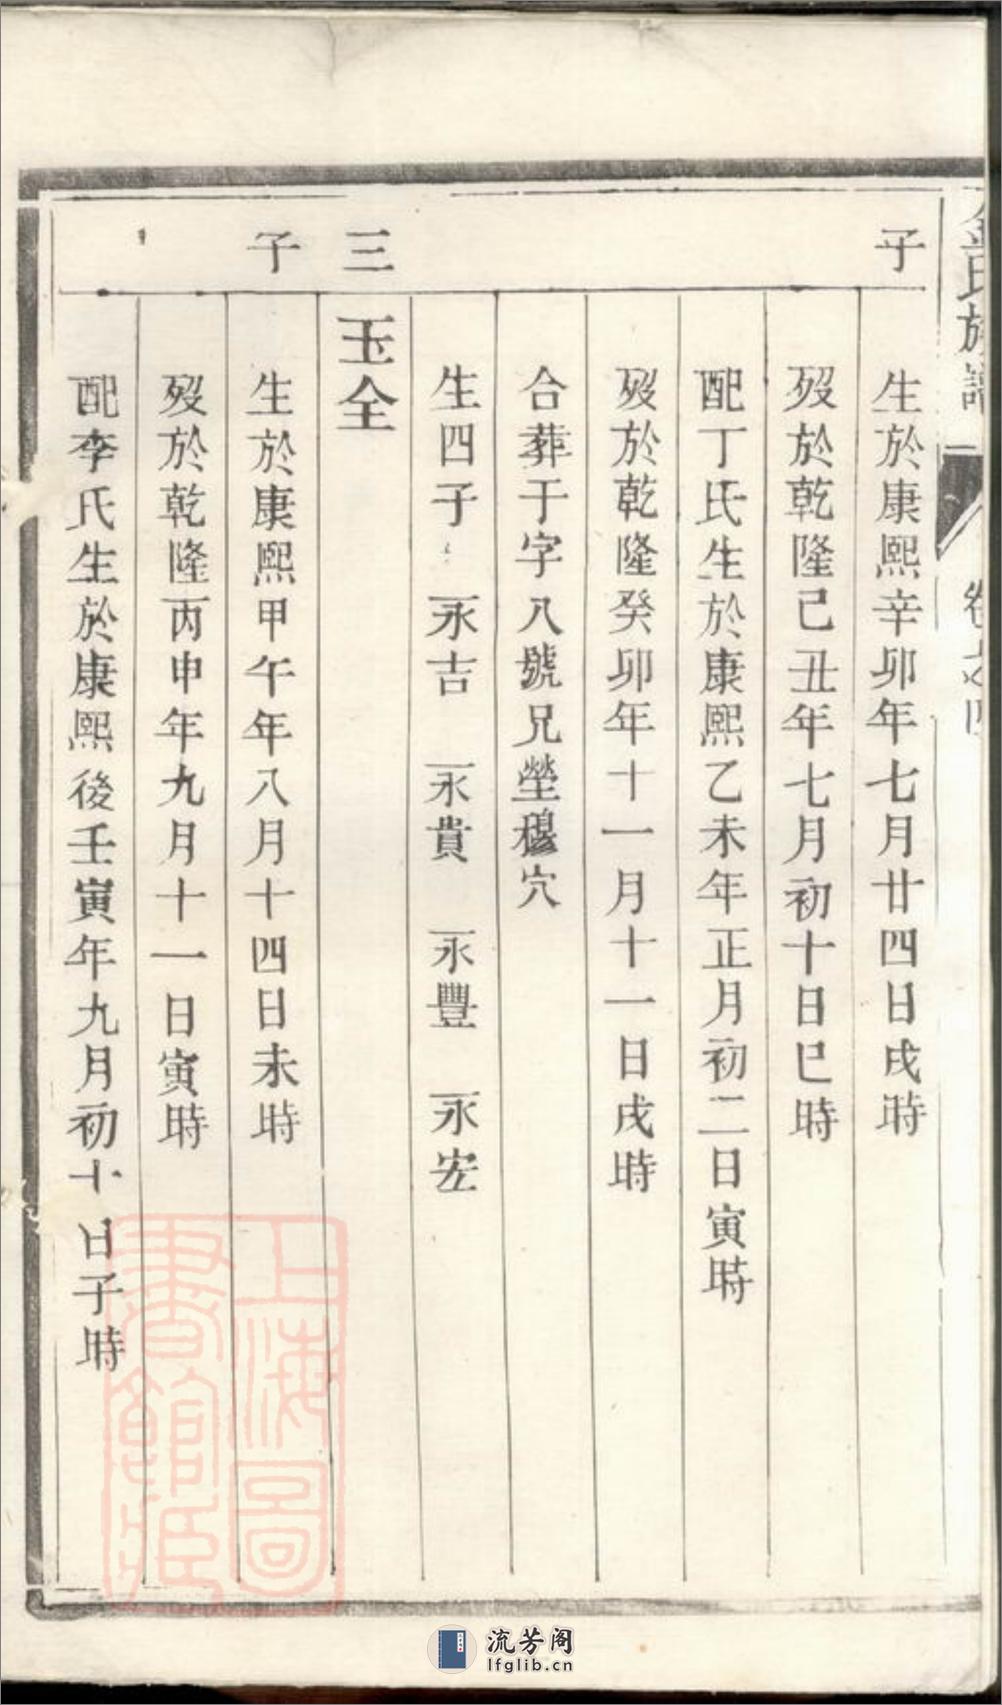 氏族譜
子
生於康熙辛卯年七月廿四日戌時
歿於乾隆己丑年七月初十日巳時
配丁氏生於康熙乙未年正月初二日寅時
歿於乾隆癸卯年十一月十一日戌時
合葬于字八號兄塋穆穴
生四子 永吉 永貴 永豐 永宏
三 玉全
子 生於康熙甲午年八月十四日未時
歿於乾隆丙申年九月十一日寅時
配李氏生於康熙後壬寅年九月初十日子時
上海圖書館藏
流芳阁
lfglib.cn